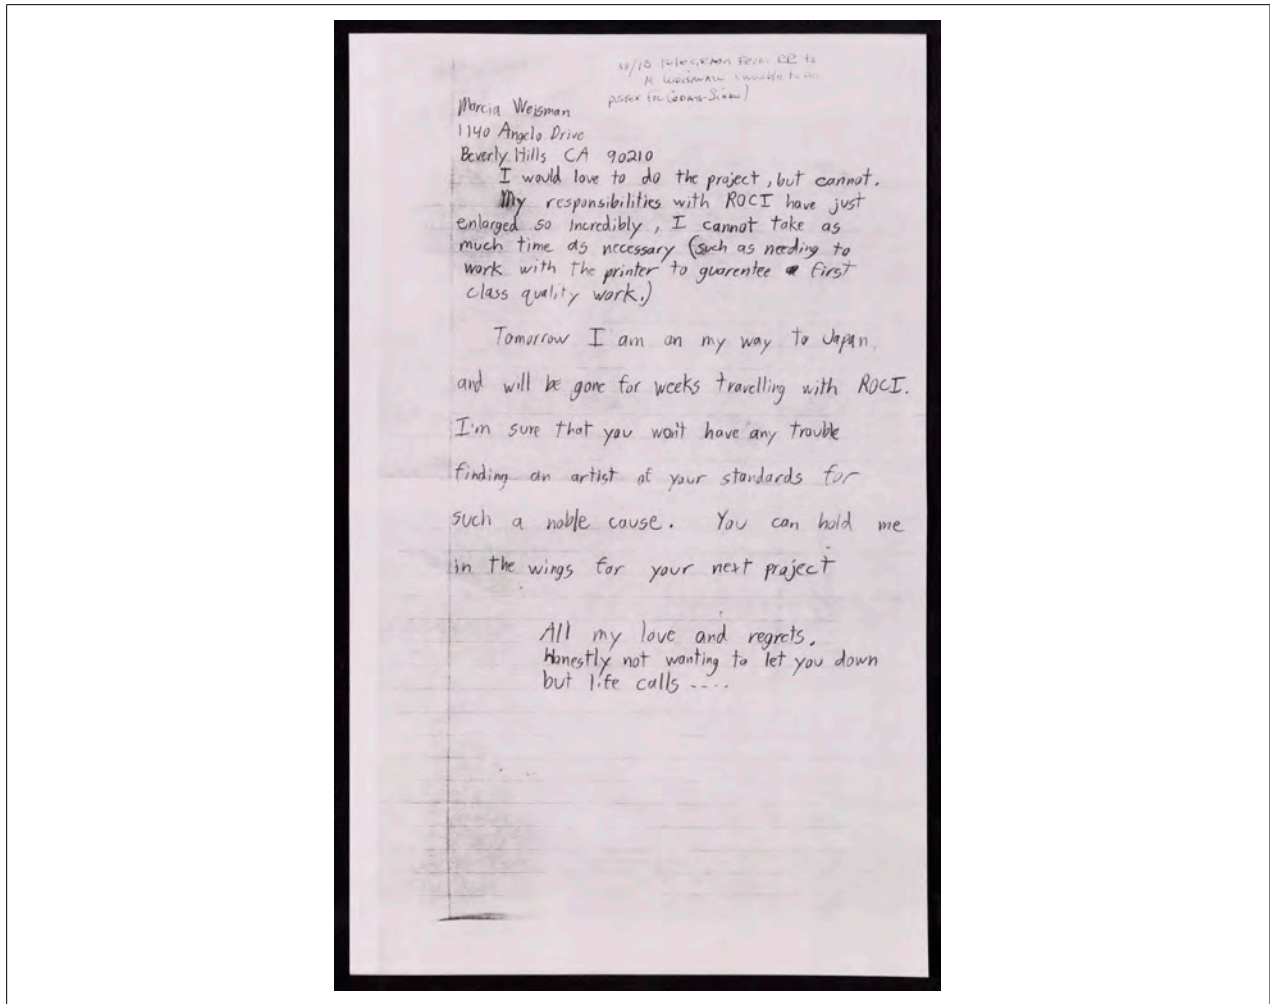 10/18 telegram from RR to
M Weisman (unable to do
poster for Cedars-Sinai)
Marcia Weisman
1140 Angelo Drive
Beverly Hills CA 90210
I would love to do the project, but cannot.
My responsibilities with ROCI have just
enlarged so incredibly, I cannot take as
much time as necessary (such as needing to
work with the printer to guarentee a first
class quality work.)
Tomorrow I am on my way to Japan
and will be gone for weeks travelling with ROCI.
I'm sure that you won't have any trouble
finding an artist of your standards for
such a noble cause. You can hold me
in the wings for your next project
All my love and regrets.
Honestly not wanting to let you down
but life calls ....